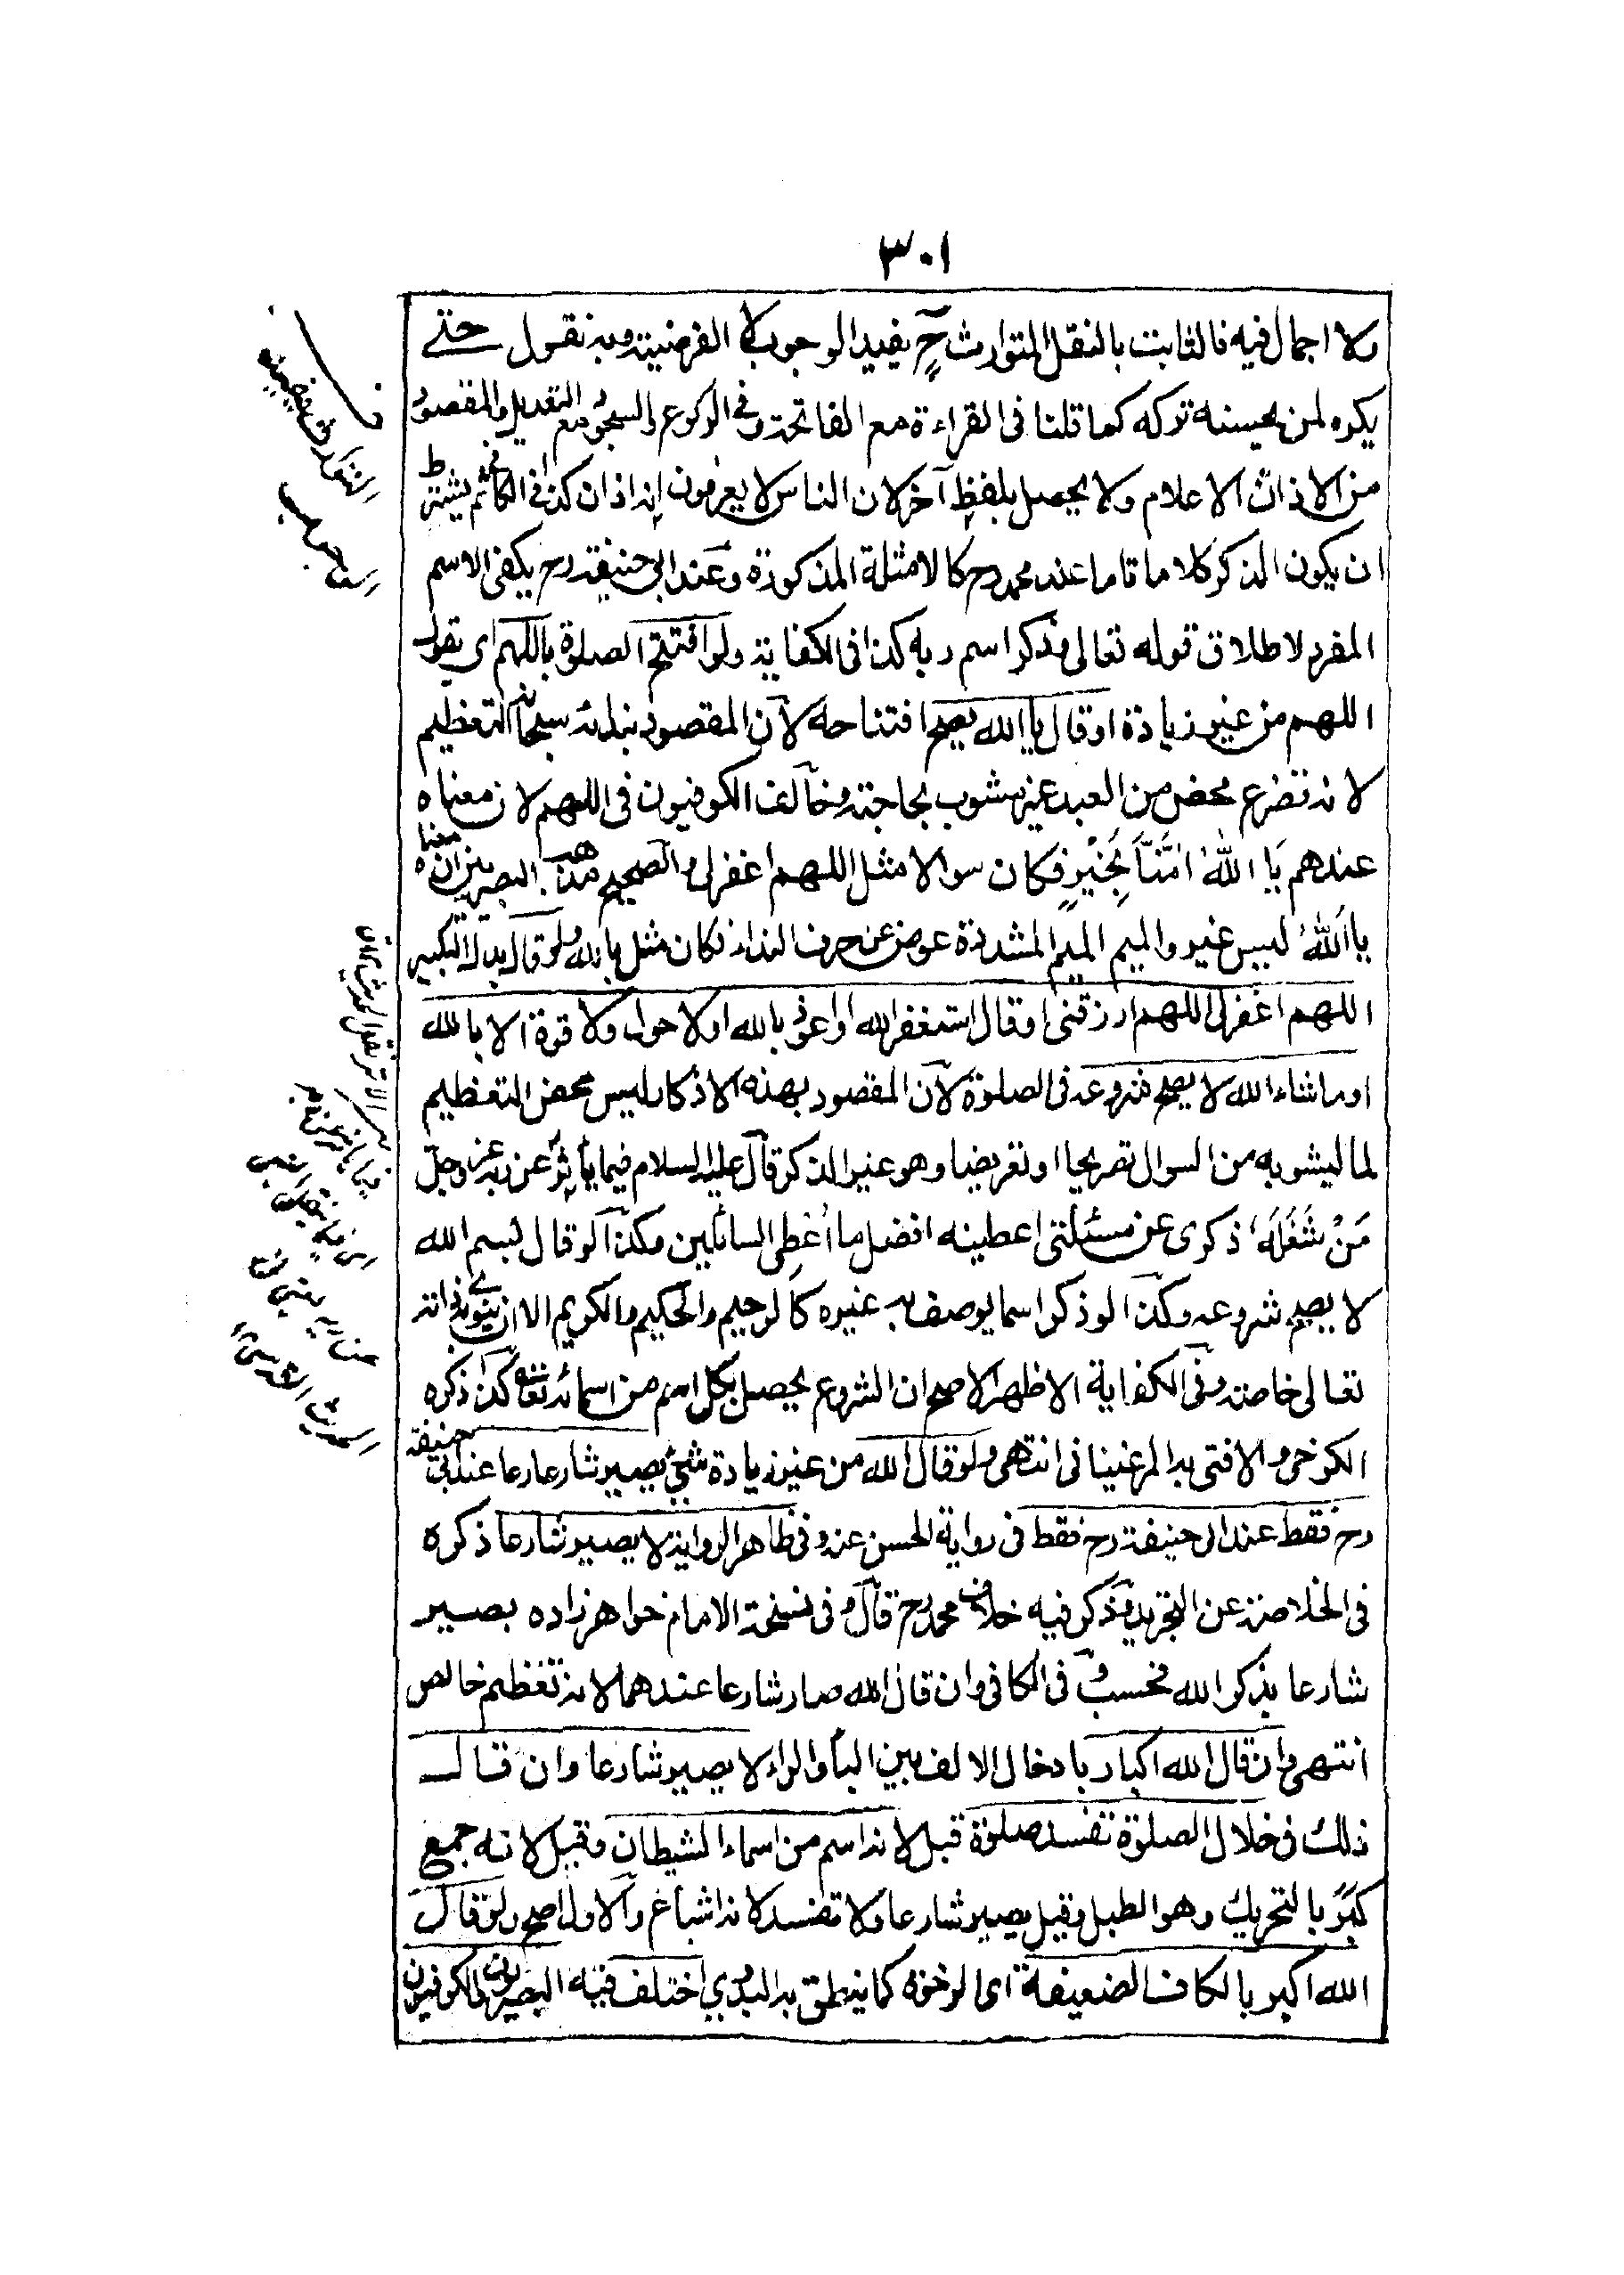 ٣٠١
ولا اجمال فيه فالثابت بالنقل المتوارث ح يفيد الوجوب لا الفرضية وبه نقول حتے
يكره لمن يحسنه تركه كما قلنا فى القراءة مع الفاتحة وفى الركوع والسجود مع التعديل والمقصود
من الاذان الاعلام ولا يحصل بلفظ آخر لان الناس لا يعرفون انه اذان كذا فى الكافى ثم يشترط
ان يكون الذكر كلاما تاما عند محمد رح كالامثلة المذكورة وعند ابى حنيفة رح يكفى الاسم
المفرد لاطلاق قوله تعالى وذكر اسم ربه كذا فى الكفاية ولو افتتح الصلوة باللهم اى يقول
اللهم من غير زيادة او قال يا الله يصح افتتاحه لان المقصود بندائه سبحانه التعظيم
لانه تضرع محض من العبد غير مشوب بحاجته وخالف الكوفيون فى اللهم لان معناه
عندهم يَا اللهُ اُمَّنَا بِخَيْرٍ فكان سوالا مثل اللهم اغفر لى والصحيح مذهب البصريين ان معناه
يا اللهُ ليس غير والميم الميم المشددة عوض عن حرف النداء فكان مثل يا الله ولو قال بدل التكبير
اللهم اغفر لى اللهم ارزقنى او قال استغفر الله او اعوذ بالله او لا حول ولا قوة الا بالله
او ما شاء الله لا يصح شروعه فى الصلوة لان المقصود بهذه الاذكار ليس محض التعظيم
لما يشوبه من السوال تصريحا او تعريضا وهو غير الذكر قال عليه السلام فيما يأثر عن ربه عز وجل
مَنْ شَغَلَهُ ذكرى عن مسئلتى اعطيته افضل ما اُعطِى السائلين وكذا لو قال بسم الله
لا يصح شروعه وكذا لو ذكر اسما يوصف به غيره كالرحيم والحكيم والكريم الا ان ينوى به ذاته
تعالى خاصة وفى الكفاية الاظهر الاصح ان الشروع يحصل بكل اسم من اسمائه تعالى كذا ذكره
الكرخى والافتى به المرغينانى انتهى ولو قال الله من غير زيادة شئ يصير شارعا رعا عند ابى حنيفة
رح فقط عند ابى حنيفة رح فقط فى رواية الحسن عنه وفى ظاهر الرواية لا يصير شارعا ذكره
فى الخلاصة عن التجريد وذكر فيه خلاف محمد رح قال وفى نسخة الامام خواهر زاده يصير
شارعا بذكر الله فحسب وفى الكافى وان قال الله صار شارعا عندهما لانه تعظيم خالص
انتهى وان قال الله اكبار بادخال الالف بين الباء والراء لا يصير شارعا وان قال
ذلك فى خلال الصلوة تفسد صلوة قيل لانه اسم من اسماء الشيطان وقيل لانه جمع
كَبَرٌ بالتحريك وهو الطبل وقيل يصير شارعا ولا تفسد لانه اشباع والاول اصح ولو قال
الله اكبر بالكاف الضعيفة اى الرخوة كما ينطق به البدوي اختلف فيه البصريون والكوفيون